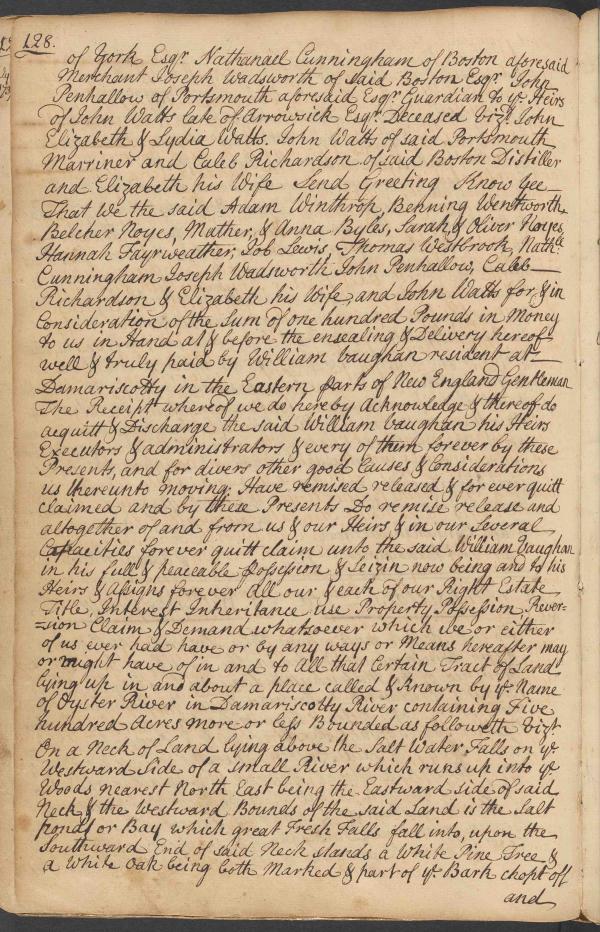 128.
of York Esqr. Nathanael Cunningham of Boston aforesaid
Merchant Joseph Wadsworth of said Boston Esqr. John
Penhallow of Portsmouth aforesaid Esqr. Guardian to ye Heirs
of John Watts late of Arrowsick Esqr. Deceased vizt. John
Elizabeth & Lydia Watts. John Watts of said Portsmouth
Marriner and Caleb Richardson of said Boston Distiller
and Elizabeth his Wife Send Greeting Know Yee
That we the said Adam Winthrop, Benning Wentworth,
Belcher Noyes, Mather, & Anna Byles, Sarah, & Oliver Noyes,
Hannah Fayrweather, Job Lewis, Thomas Westbrook, Nathll.
Cunningham Joseph Wadsworth John Penhallow, Caleb
Richardson & Elizabeth his Wife, and John Watts for & in
Consideration of the Sum of one hundred Pounds in Money
to us in Hand at & before the ensealing & Delivery hereof
well & truly paid by William Vaughan resident at
Damariscotty in the Eastern Parts of New England Gentleman
The Receipt whereof we do hereby Acknowledge & thereof do
acquitt & Discharge the said William Vaughan his Heirs
Executors & administrators & every of them forever by these
Presents, and for divers other good Causes & Considerations
us thereunto moving; Have remised released & for ever quitt
claimed and by these Presents Do remise release and
altogether of and from us & our Heirs & in our Several
Capacities forever quitt claim unto the said William Vaughan
in his full & peaceable Possession & Seizin now being and to his
Heirs & Assigns forever All our & each of our Right Estate
Title, Interest Inheritance use Property Possession Rever=
=sion Claim & Demand whatsoever which we or either
of us ever had have or by any ways or Means hereafter may
or might have of in and to All that Certain Tract of Land
lying up in and about a place called & Known by ye Name
of Oyster River in Damariscotty River containing Five
hundred Acres more or less Bounded as followeth vizt
On a Neck of Land lying above the Salt Water Falls on ye
Westward Side of a small River which runs up into ye
Woods nearest North East being the Eastward side of said
Neck & the Westward Bounds of the said Land is the Salt
Ponds or Bay which great Fresh Falls fall into, upon the
Southward End of said Neck stands a White Pine Tree &
a White Oak being both Marked & part of ye Bark chopt off
and